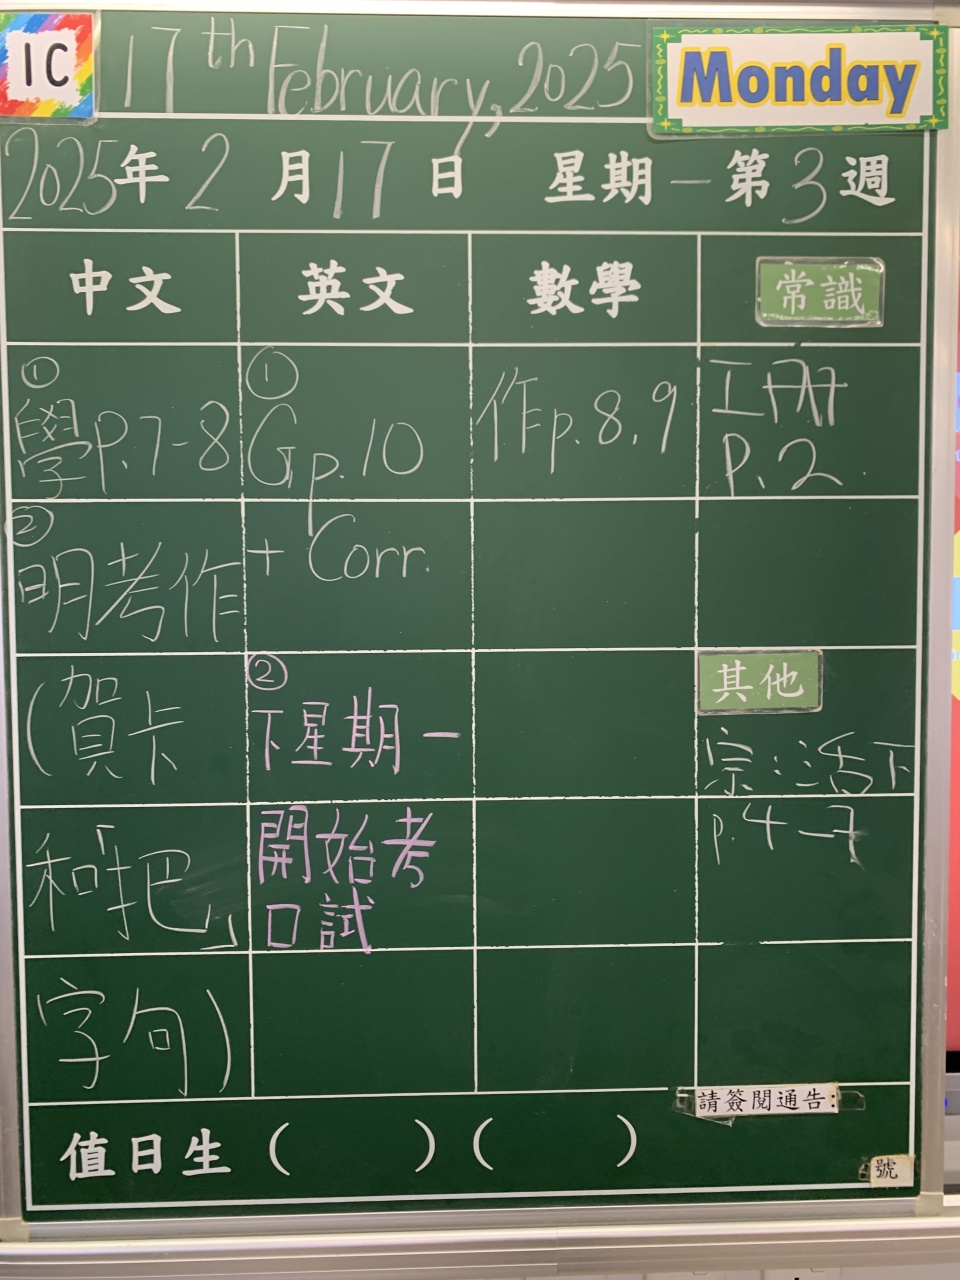 1C
17th February, 2025
Monday
2025年2月17日 星期一 第3週
中文 英文 數學 常識
①
學P.7-8
②
明考作
(賀卡
和「把」
字句)
①
Gp.10
+ Corr.
②
下星期一
開始考
口試
作p.8,9
P.2
其他
宗:活下
p.4-7
請簽閱通告:
號
值日生 ( ) ( )